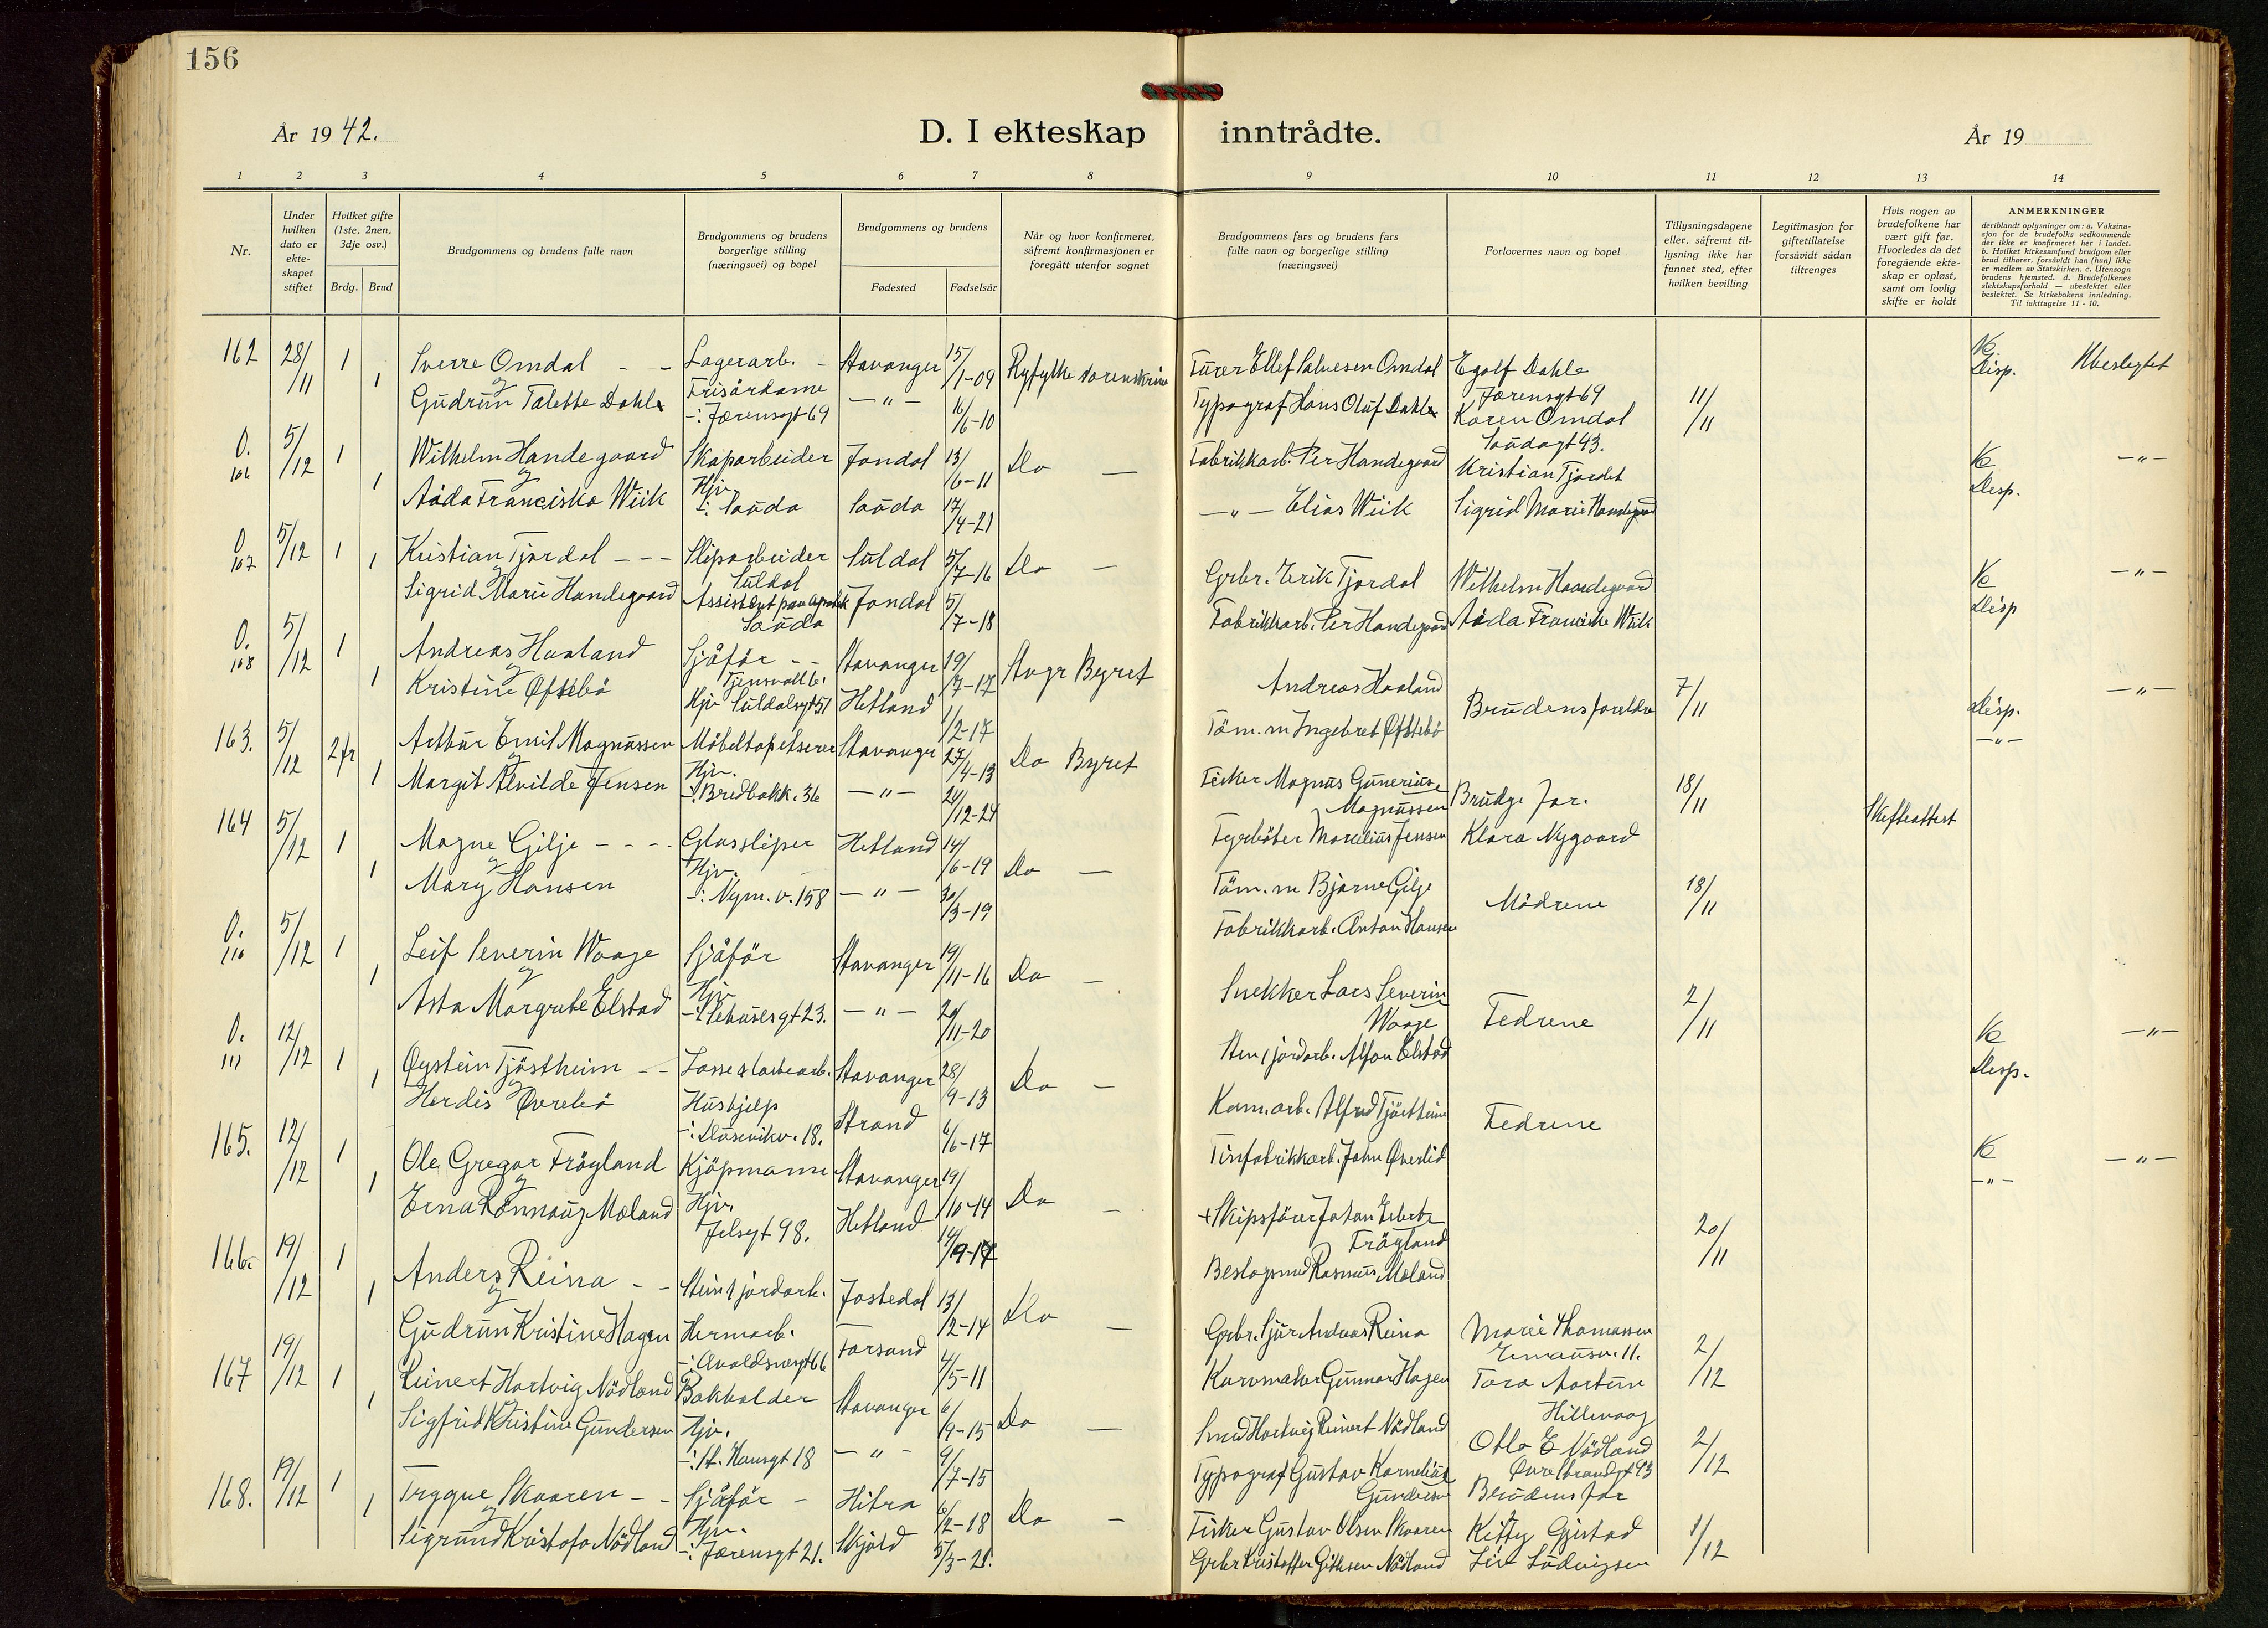 156
År 1942.
D. I ekteskap inntrådte.
År 19
1 2 3 4 5 6 7 8 9 10 11 12 13 14
Nr.
Under hvilken dato er ekte-skapet stiftet
Hvilket gifte (1ste, 2nen, 3dje osv.)
Brdg. Brud
Brudgommens og brudens fulle navn
Brudgommens og brudens borgerlige stilling (næringsvei) og bopel
Brudgommens og brudens
Fødested Fødselsår
Når og hvor konfirmeret, såfremt konfirmasjonen er foregått utenfor sognet
Brudgommens fars og brudens fars fulle navn og borgerlige stilling (næringsvei)
Forlovernes navn og bopel
Tillysningsdagene eller, såfremt til-lysning ikke har funnet sted, efter hvilken bevilling
Legitimasjon for giftetillatelse forsåvidt sådan tiltrenges
Hvis nogen av brudefolkene har vært gift før. Hvorledes da det foregående ekte-skap er opløst, samt om lovlig skifte er holdt
ANMERKNINGER
deriblandt oplysninger om: a. Vaksina-
sjon for de brudefolks vedkommende
der ikke er konfirmeret her i landet.
b. Hvilket kirkesamfund brudgom eller
brud tilhører, forsåvidt han (hun) ikke
er medlem av Statskirken. c. Utensogn
brudens hjemsted. d. Brudefolkenes
slektskapsforhold — ubeslektet eller
beslektet. Se kirkebokens innledning.
Til iakttagelse 11 - 10.
162 28/11 1 Sverre Omdal - - Lagerarb. - Stavanger 15/1-09 Ryfylke sorenskriver Furer Ellef Salvesen Omdal Egolf Dahle Disp. Ubeslegtet
og
1 Gudrun Talette Dahle Frisørdame -"- 16/6-10 Typograf Hans Oluf Dahle Jærensgt 69 11/11
-: Jærensgt 69 Karen Omdal
Saudagt 43.
O. 106 5/12 1 Wilhelm Handegaard Skaparbeider Jondal 13/6-11 Do — Fabrikkarb. Per Handegaard Kristian Tjordet Disp. -"-
og
1 Aada Franciska Wiik Hjv. -: Sauda Sauda 17/4-21 -"- Elias Wiik Sigrid Marie Handegaard
O 107 5/12 1 Kristian Tjordal - - - Sliparbeider Suldal 5/7-16 Do - Grbr. Erik Tjordal Wilhelm Handegaard Disp -"-
Suldal
og
1 Sigrid Marie Handegaard Assistent paa apotek Jondal 5/7-18 Fabrikkarb. Per Handegaard Aada Franciske Wiik
Sauda
O. 108 5/12 1 Andreas Haaland Sjåfør - - Stavanger 19/7-17 Stvgr Byret Andreas Haaland Brudens foreldre 7/11 Disp. -"-
Tjensvoll 6.
og
1 Kristine Øftsbø Hjv Suldalsgt 51 Hetland 1/2-17 Töm. m Ingebret Øftstbö -"-
163. 5/12 2 fr Arthur Emil Magnussen Møbeltapetserer Stavanger 27/4-13 Do Byret Fisker Magnus Gunerius Magnussen Brudg. far. 18/11 Skifteattest
og
1 Margit Alvilde Jensen Hjv. -: Bredbakk. 36 -"- 24/12-24 Fyrbøter Marelius Jensen Klara Nygaard
164 5/12 1 Magne Gilje - - - Glassliper Hetland 14/6-19 Do — Töm. m Bjarne Gilje Mødrene 18/11
og
1 Mary Hansen Hjv. -: Nym. v. 158 -"- 30/3-19 Fabrikkarb. Anton Hansen
O. 110 5/12 1 Leif Severin Waage Sjåfør Stavanger 19/11-16 Do - Snekker Lars Severin Waage Fedrene 2/11
og
1 Asta Margrete Elstad Hjv -: Pehusersgt 23. -"- 20/11-20 Sten & jordarb. Alfon Elstad Disp. -"-
O. 111 12/12 1 Øystein Tjøstheim - - Losse & lastearb. Stavanger 28/9-13 Do - Kom. arb. Alfred Tjøstheim Fedrene
og
1 Herdis Øvrebø Hushjelp Strand 6/6-17 Tinfabrikkarb. John Øverlid -"-
165. 12/12 1 Ole Gregor Frøyland Kjøpmann Stavanger 19/10-14 Do - + Skipsfører Johan Frøyland 20/11 -"-
og
1 Erna Rannaug Moland Hjv. Jelsgt 98. Hetland 14/9-17 Beslagsmed Rasmus Moland
166. 19/12 1 Anders Reina - - Stein & jordarb. Jostedal 13/2-14 Do — Grbr. Sjur Andreas Reina Marie Thomassen
Emausv. 11.
og
1 Gudrun Kristine Hagen Hermarb. -: Avaldsnesgt 66 Forsand 4/5-11 Kurvmaker Gunnar Hagen Tora Aartun 2/12
Hillevaag
167 19/12 1 Reinert Hartvig Nødland Bokholder Stavanger 6/9-15 Do — Smed Hartvig Reinert Nødland Otto E Nødland 2/12
Øvre Strandgt 93
1 Sigfrid Kristine Gundersen Hjv. -: St. Hansgt 18 -"- 4/7-15 Typograf Gustav Kornelius Gundersen Brudens far
168. 19/12 1 Trygve Skaaren - - Sjåfør - Hitra 6/2-18 Do - Fisker Gustav Olsen Skaaren Kitty Gjistad 1/12
og
1 Sigrund Kristofa Nødland Hjv. -: Jærensgt 21. Skjold 5/3-21. Grbr Kristoffer Githesen Nødland Liv Ludvigsen